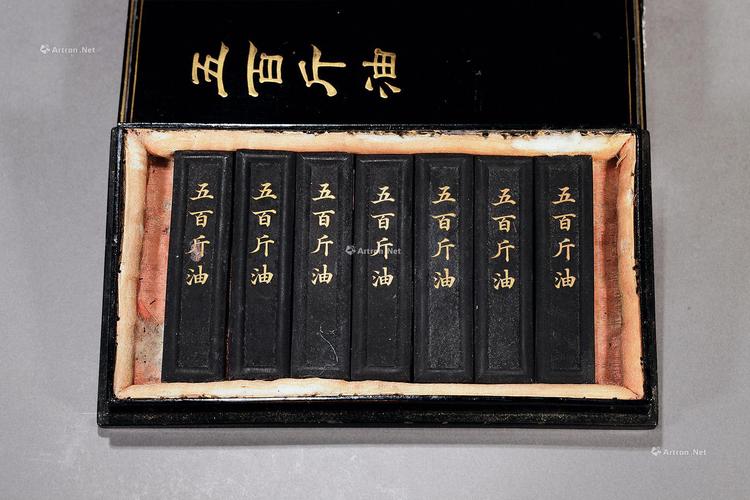 五百斤油
五百斤油
五百斤油
五百斤油
五百斤油
五百斤油
五百斤油
五百斤油
Artron.Net
Artron.Net
Artron.Net